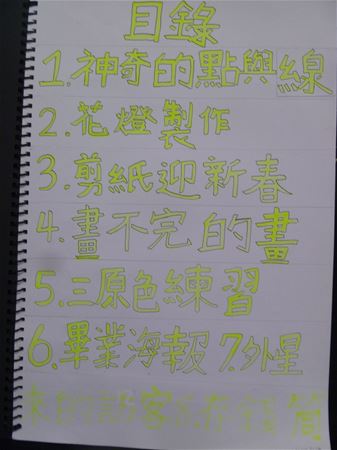 目錄
1.神奇的點與線
2.花燈製作
3.剪紙迎新春
4.畫不完的畫
5.三原色練習
6.畢業海報 7.外星
來的訪客 簡